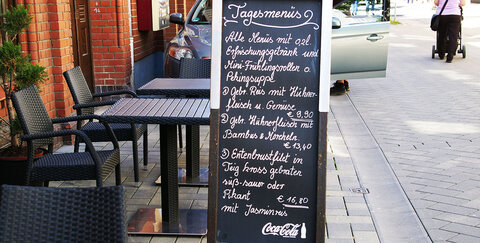 Tagesmenüs
Alle Menüs mit 0,2l
Erfrischungsgetränk und
Mini-Frühlingsrollen o.
Pekingsuppe
1) Gebr. Reis mit Hühner-
fleisch u. Gemüse
€ 9,90
2) Gebr. Hühnerfleisch mit
Bambus & Morcheln
€ 13,40
3) Entenbrustfilet in
Teig kross gebraten
süß-sauer oder
Pikant € 16,80
mit Jasminreis
Coca-Cola